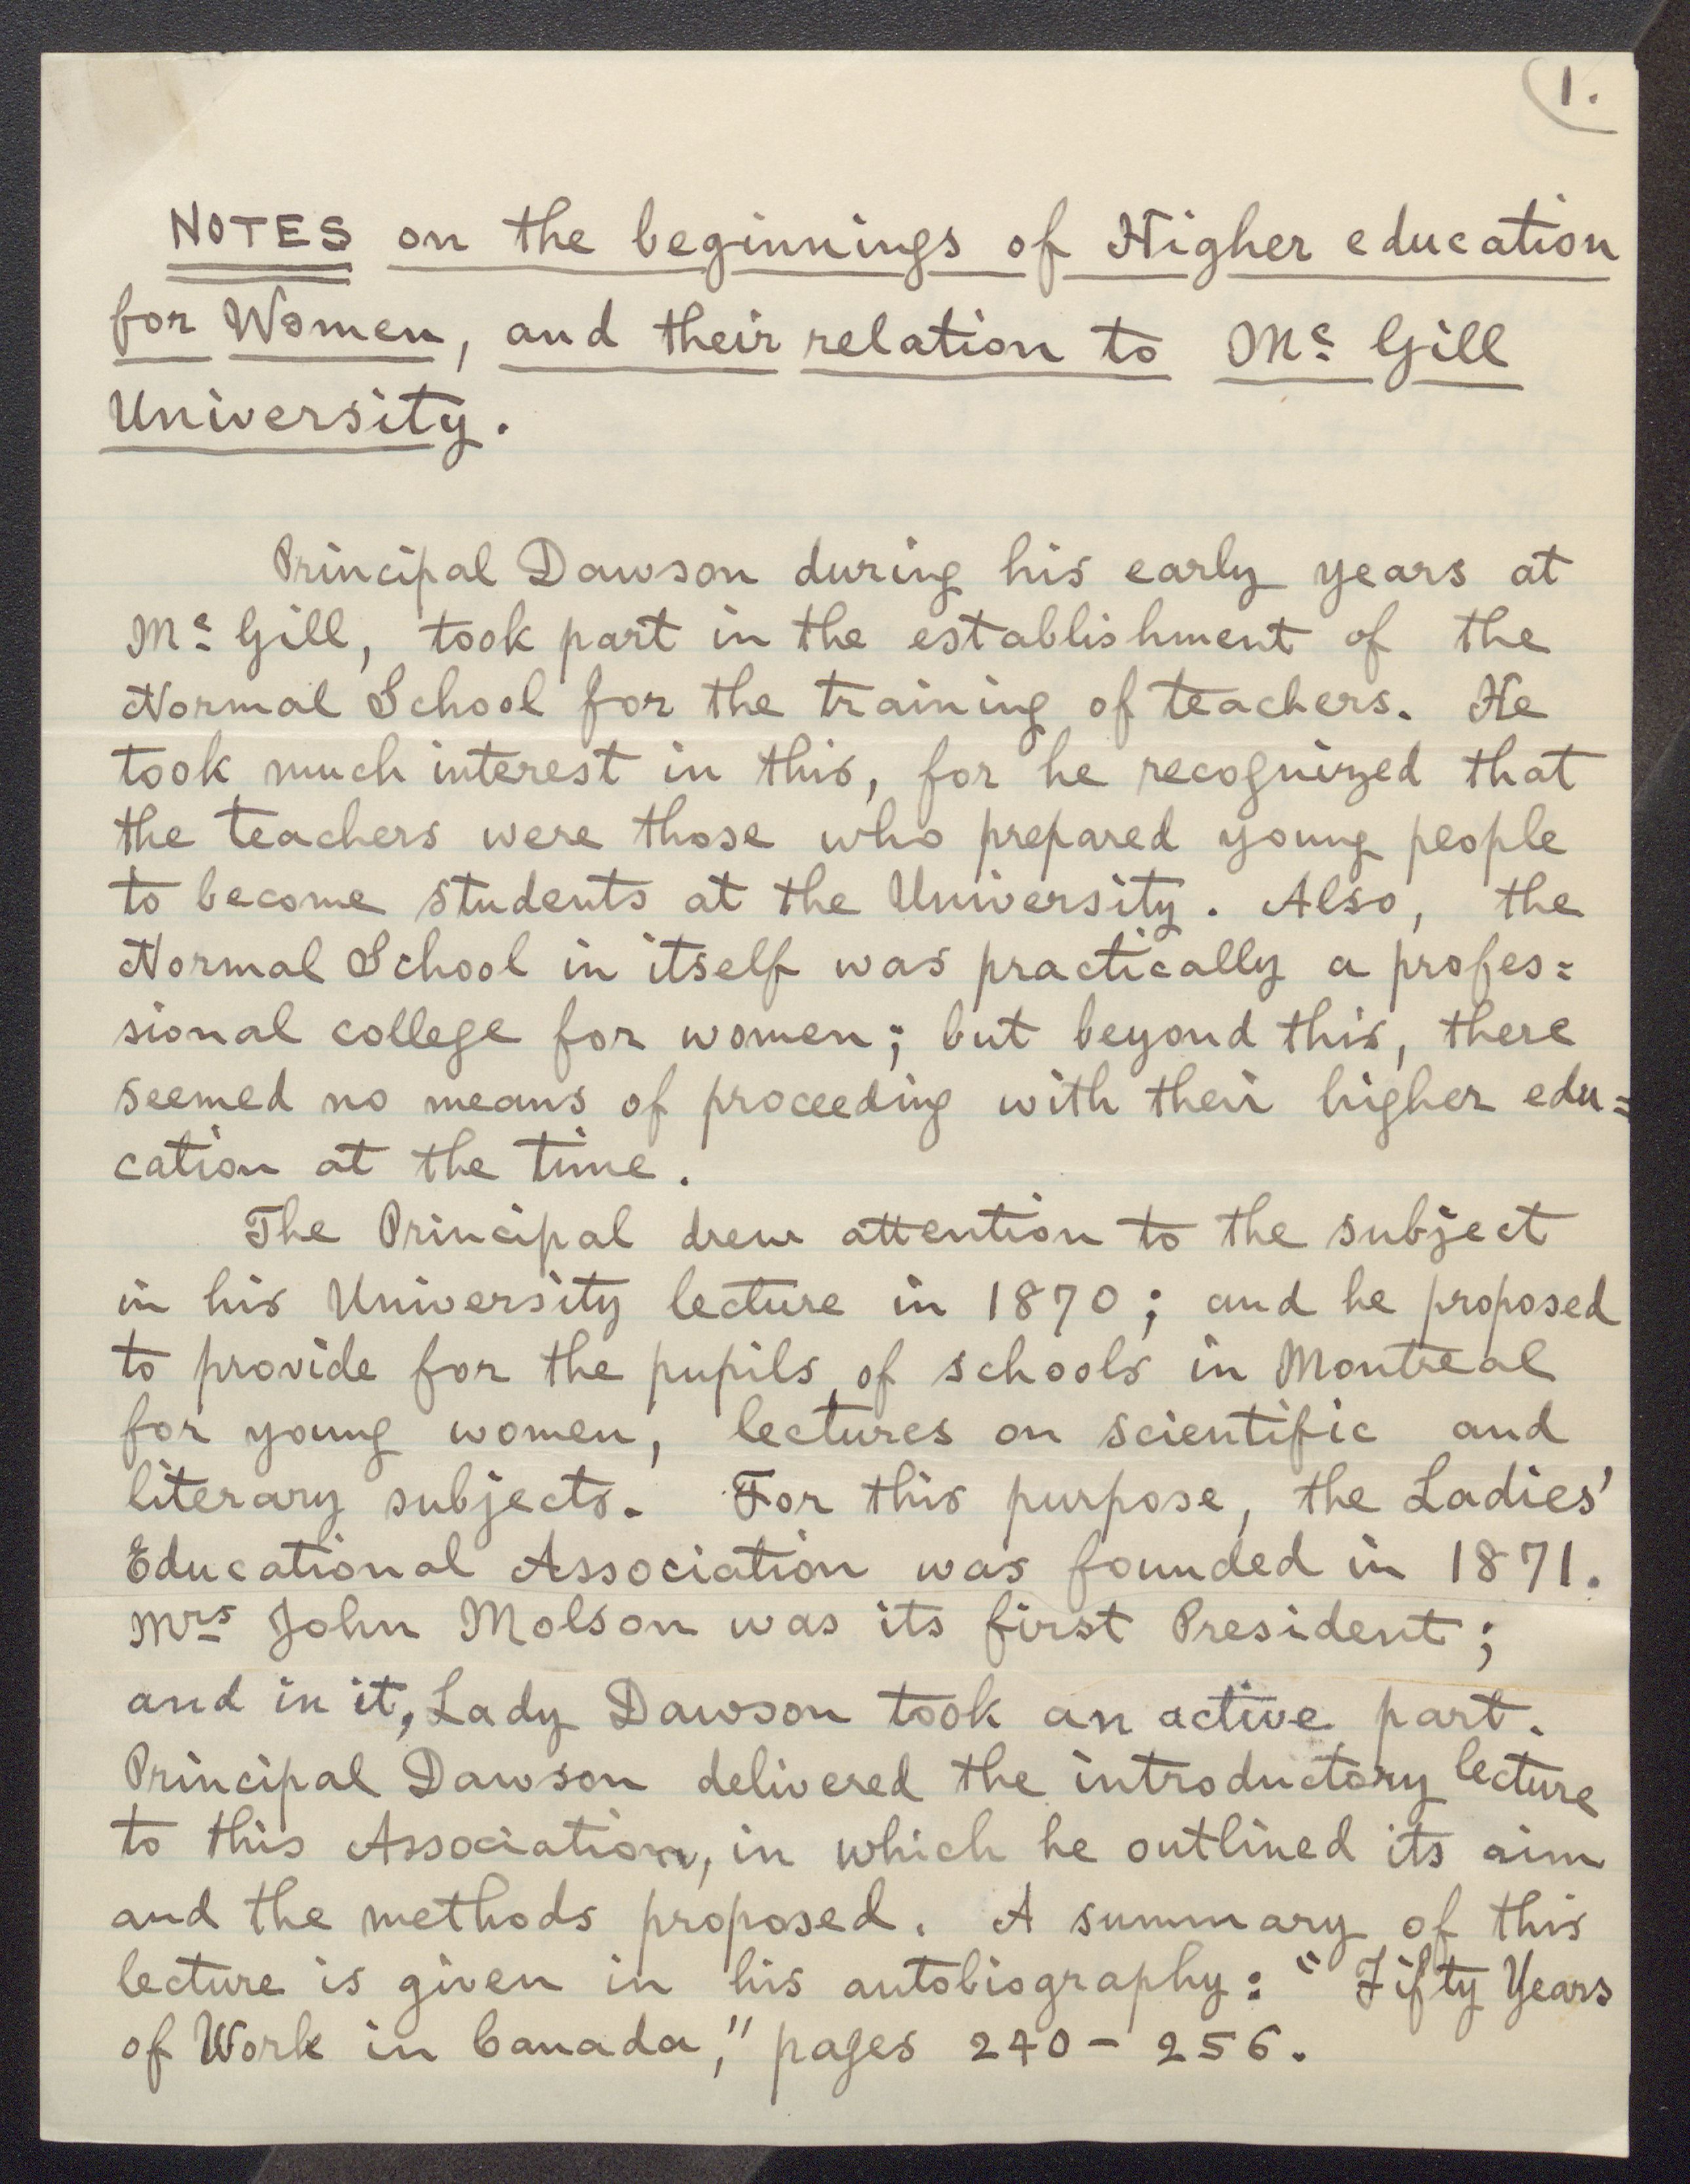 1.
NOTES on the beginnings of Higher education
for Women, and their relation to Mc Gill
University.
Principal Dawson during his early years at
Mc Gill, took part in the establishment of the
Normal School for the training of teachers. He
took much interest in this, for he recognized that
the teachers were those who prepared young people
to become students at the University. Also, the
Normal School in itself was practically a profes=
sional college for women; but beyond this, there
seemed no means of proceeding with their higher edu=
cation at the time.
The Principal drew attention to the subject
in his University lecture in 1870; and he proposed
to provide for the pupils of schools in Montreal
for young women, lectures on scientific and
literary subjects. For this purpose, the Ladies'
Educational Association was founded in 1871.
Mrs John Molson was its first President;
and in it, Lady Dawson took an active part.
Principal Dawson delivered the introductory lecture
to this Association, in which he outlined its aim
and the methods proposed. A summary of this
lecture is given in his autobiography: "Fifty Years
of Work in Canada," pages 240 - 256.